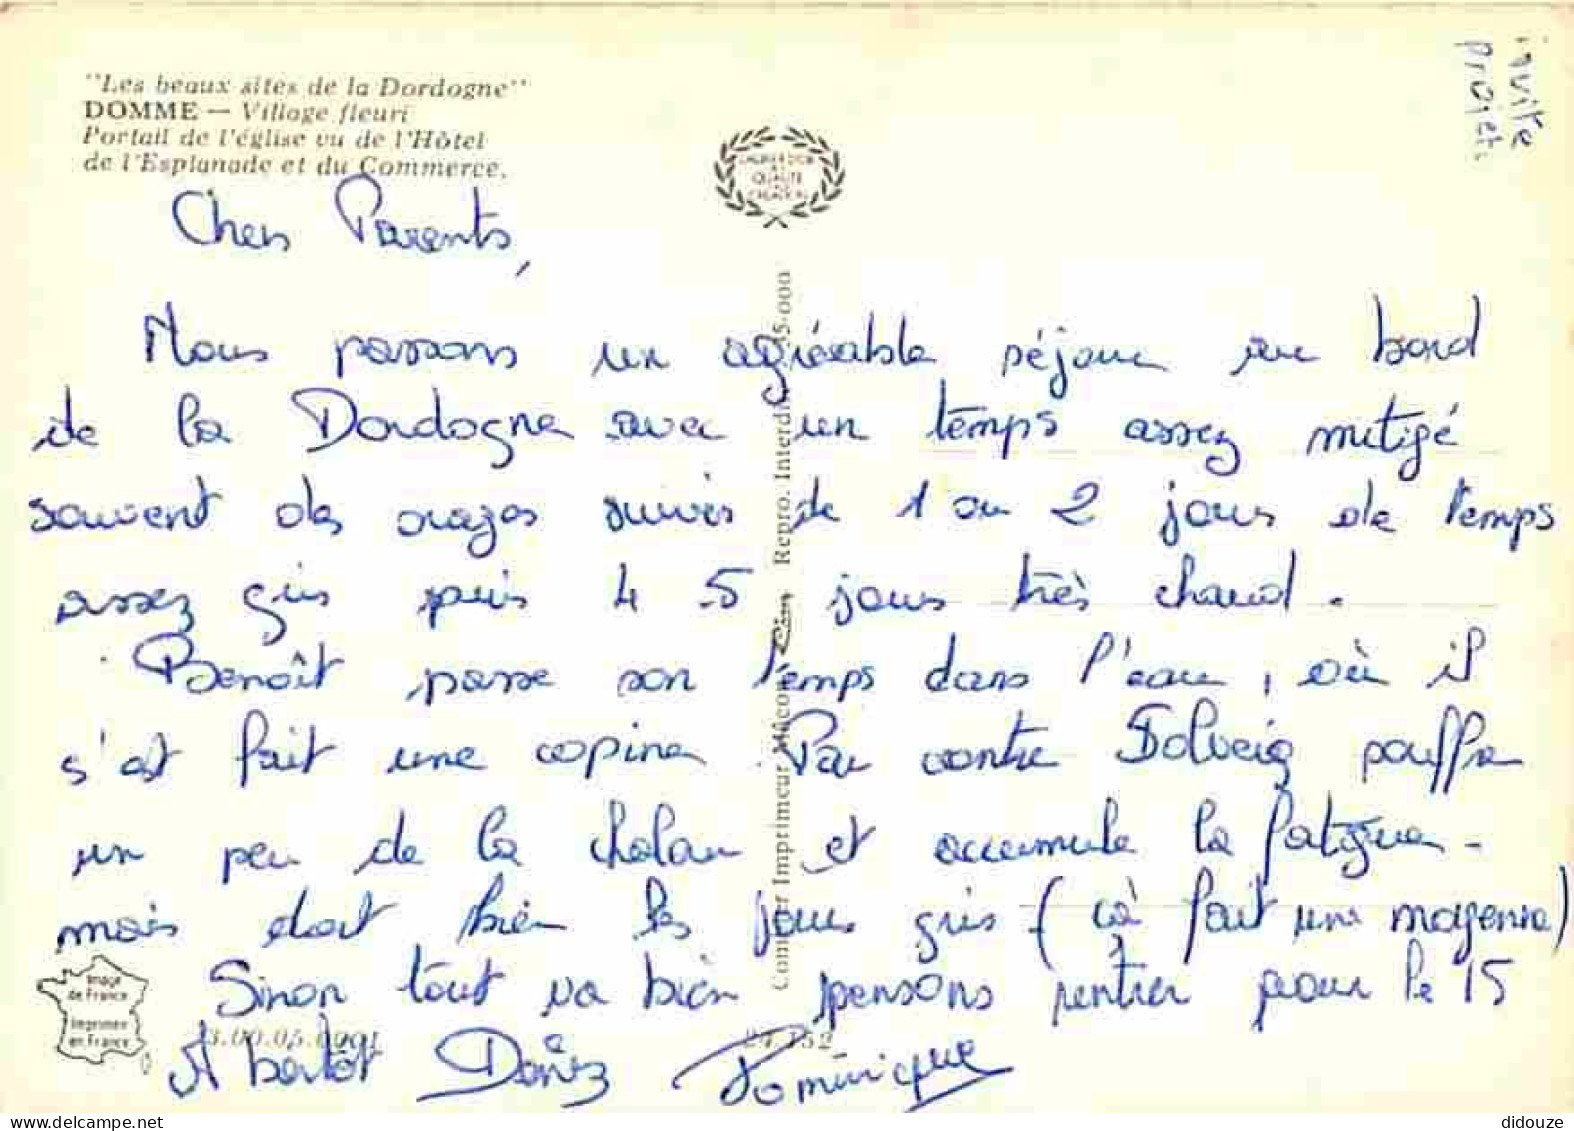 "Les beaux sites de la Dordogne"
DOMME — Village fleuri
Portail de l'église vu de l'Hôtel
de l'Esplanade et du Commerce.
invite
projet
QUALITÉ
Repro. Interdite
Combier Imprimeur Mâcon
Chers Parents,
Nous passons un agréable séjour au bord
de la Dordogne avec un temps assez mitigé
souvent des orages suivis de 1 ou 2 jours de temps
assez gris puis 4 5 jours très chaud.
Benoît passe son temps dans l'eau, où il
s'est fait une copine Par contre Solveig souffre
un peu de la chaleur et accumule la fatigue -
mais dort bien les jours gris (cà fait une moyenne)
Sinon tout va bien pensons rentrer pour le 15
A bientôt Denis Dominique
Image
de France
Imprimée
en France
24.152
didouze